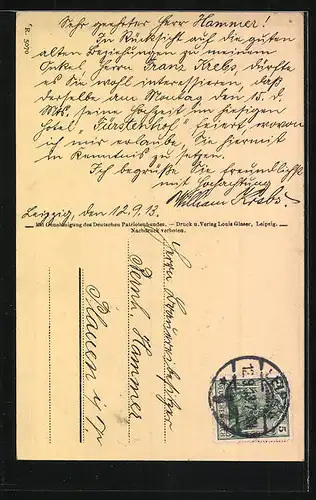 *R. 5070
Sehr geehrter Herr Hammer!
In Rücksicht auf die guten
alten Beziehungen zu meinem
Onkel, Herrn Franz Krebs, dürfte
es Sie wohl interessieren, daß
derselbe am Montag den 15. d.
Mts. seine Hochzeit im hiesigen
Hotel „Fürstenhof" feiert, wovon
ich mir erlaube, Sie hiermit
in Kenntnis zu setzen.
Ich begrüße Sie freundlichst
mit Hochachtung
William Krebs
Leipzig, den 12.9.13.
Mit Genehmigung des Deutschen Patriotenbundes. — Druck u. Verlag Louis Glaser, Leipzig.
Nachdruck verboten.
Herrn Brauereibesitzer
Bernh. Hammer
Plauen i/V
LEIPZIG
12.9.13
5